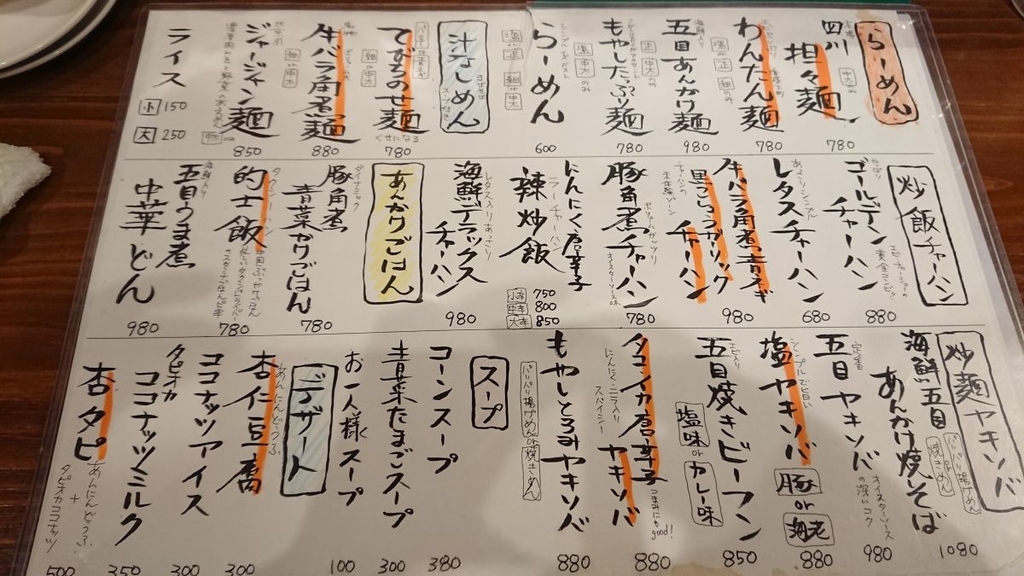 らーめん
四川
担々麺
780
わんたん麺
780
五目あんかけ麺
980
もやしたっぷり麺
780
らーめん
600
汁なしめん
てがらのせ麺
くせになる
780
牛バラ角煮麺
880
ジャージャン麺
850
ライス
小 150
大 250
炒飯 チャーハン
ゴールデン
チャーハン
880
レタスチャーハン
680
牛バラ角煮青ネギ
黒こしょうガーリック
チャーハン
980
豚角煮チャーハン
780
にんにく唐辛子
辣炒飯
小辛 750
中辛 800
大辛 850
海鮮デラックス
チャーハン
980
あんかけごはん
豚角煮
青菜かけごはん
780
的士飯
780
五目うま煮
中華どん
980
炒麺 ヤキソバ
海鮮五目
あんかけ焼そば
1080
五目ヤキソバ
980
塩ヤキソバ
豚
or
海老
880
五目焼きビーフン
塩味 or カレー味
850
タコイカ唐辛子
ヤキソバ
つまみにもgood!
880
もやしとろみヤキソバ
パリパリ揚げめんor焼きめん
880
スープ
コーンスープ
380
青菜たまごスープ
300
お一人様スープ
100
デザート
杏仁豆腐
あんにんどうふ
300
ココナッツアイス
300
タピオカ
ココナッツミルク
350
杏タピ
あんにんどうふ
+
タピオカココナッツ
500